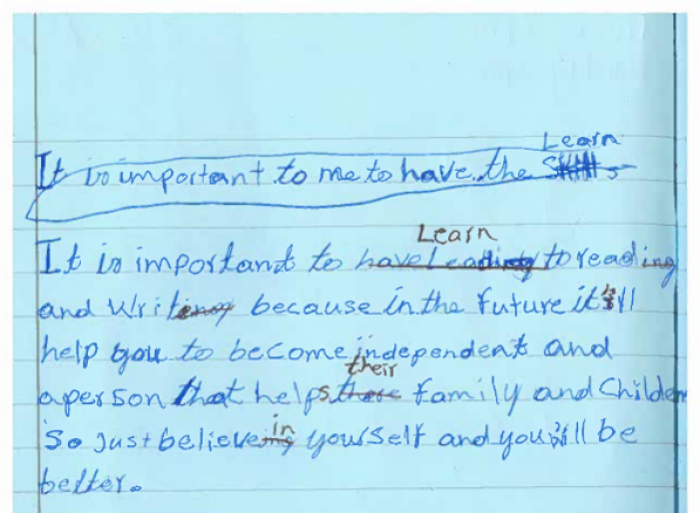 Learn
It is important to me to have the Skills
Learn
It is important to have Leading to reading
and Writeing because in the future it'll
help you to become independent and
their
a person that helps there family and Childen
in
So Just believe ing yourself and you'll be
better.